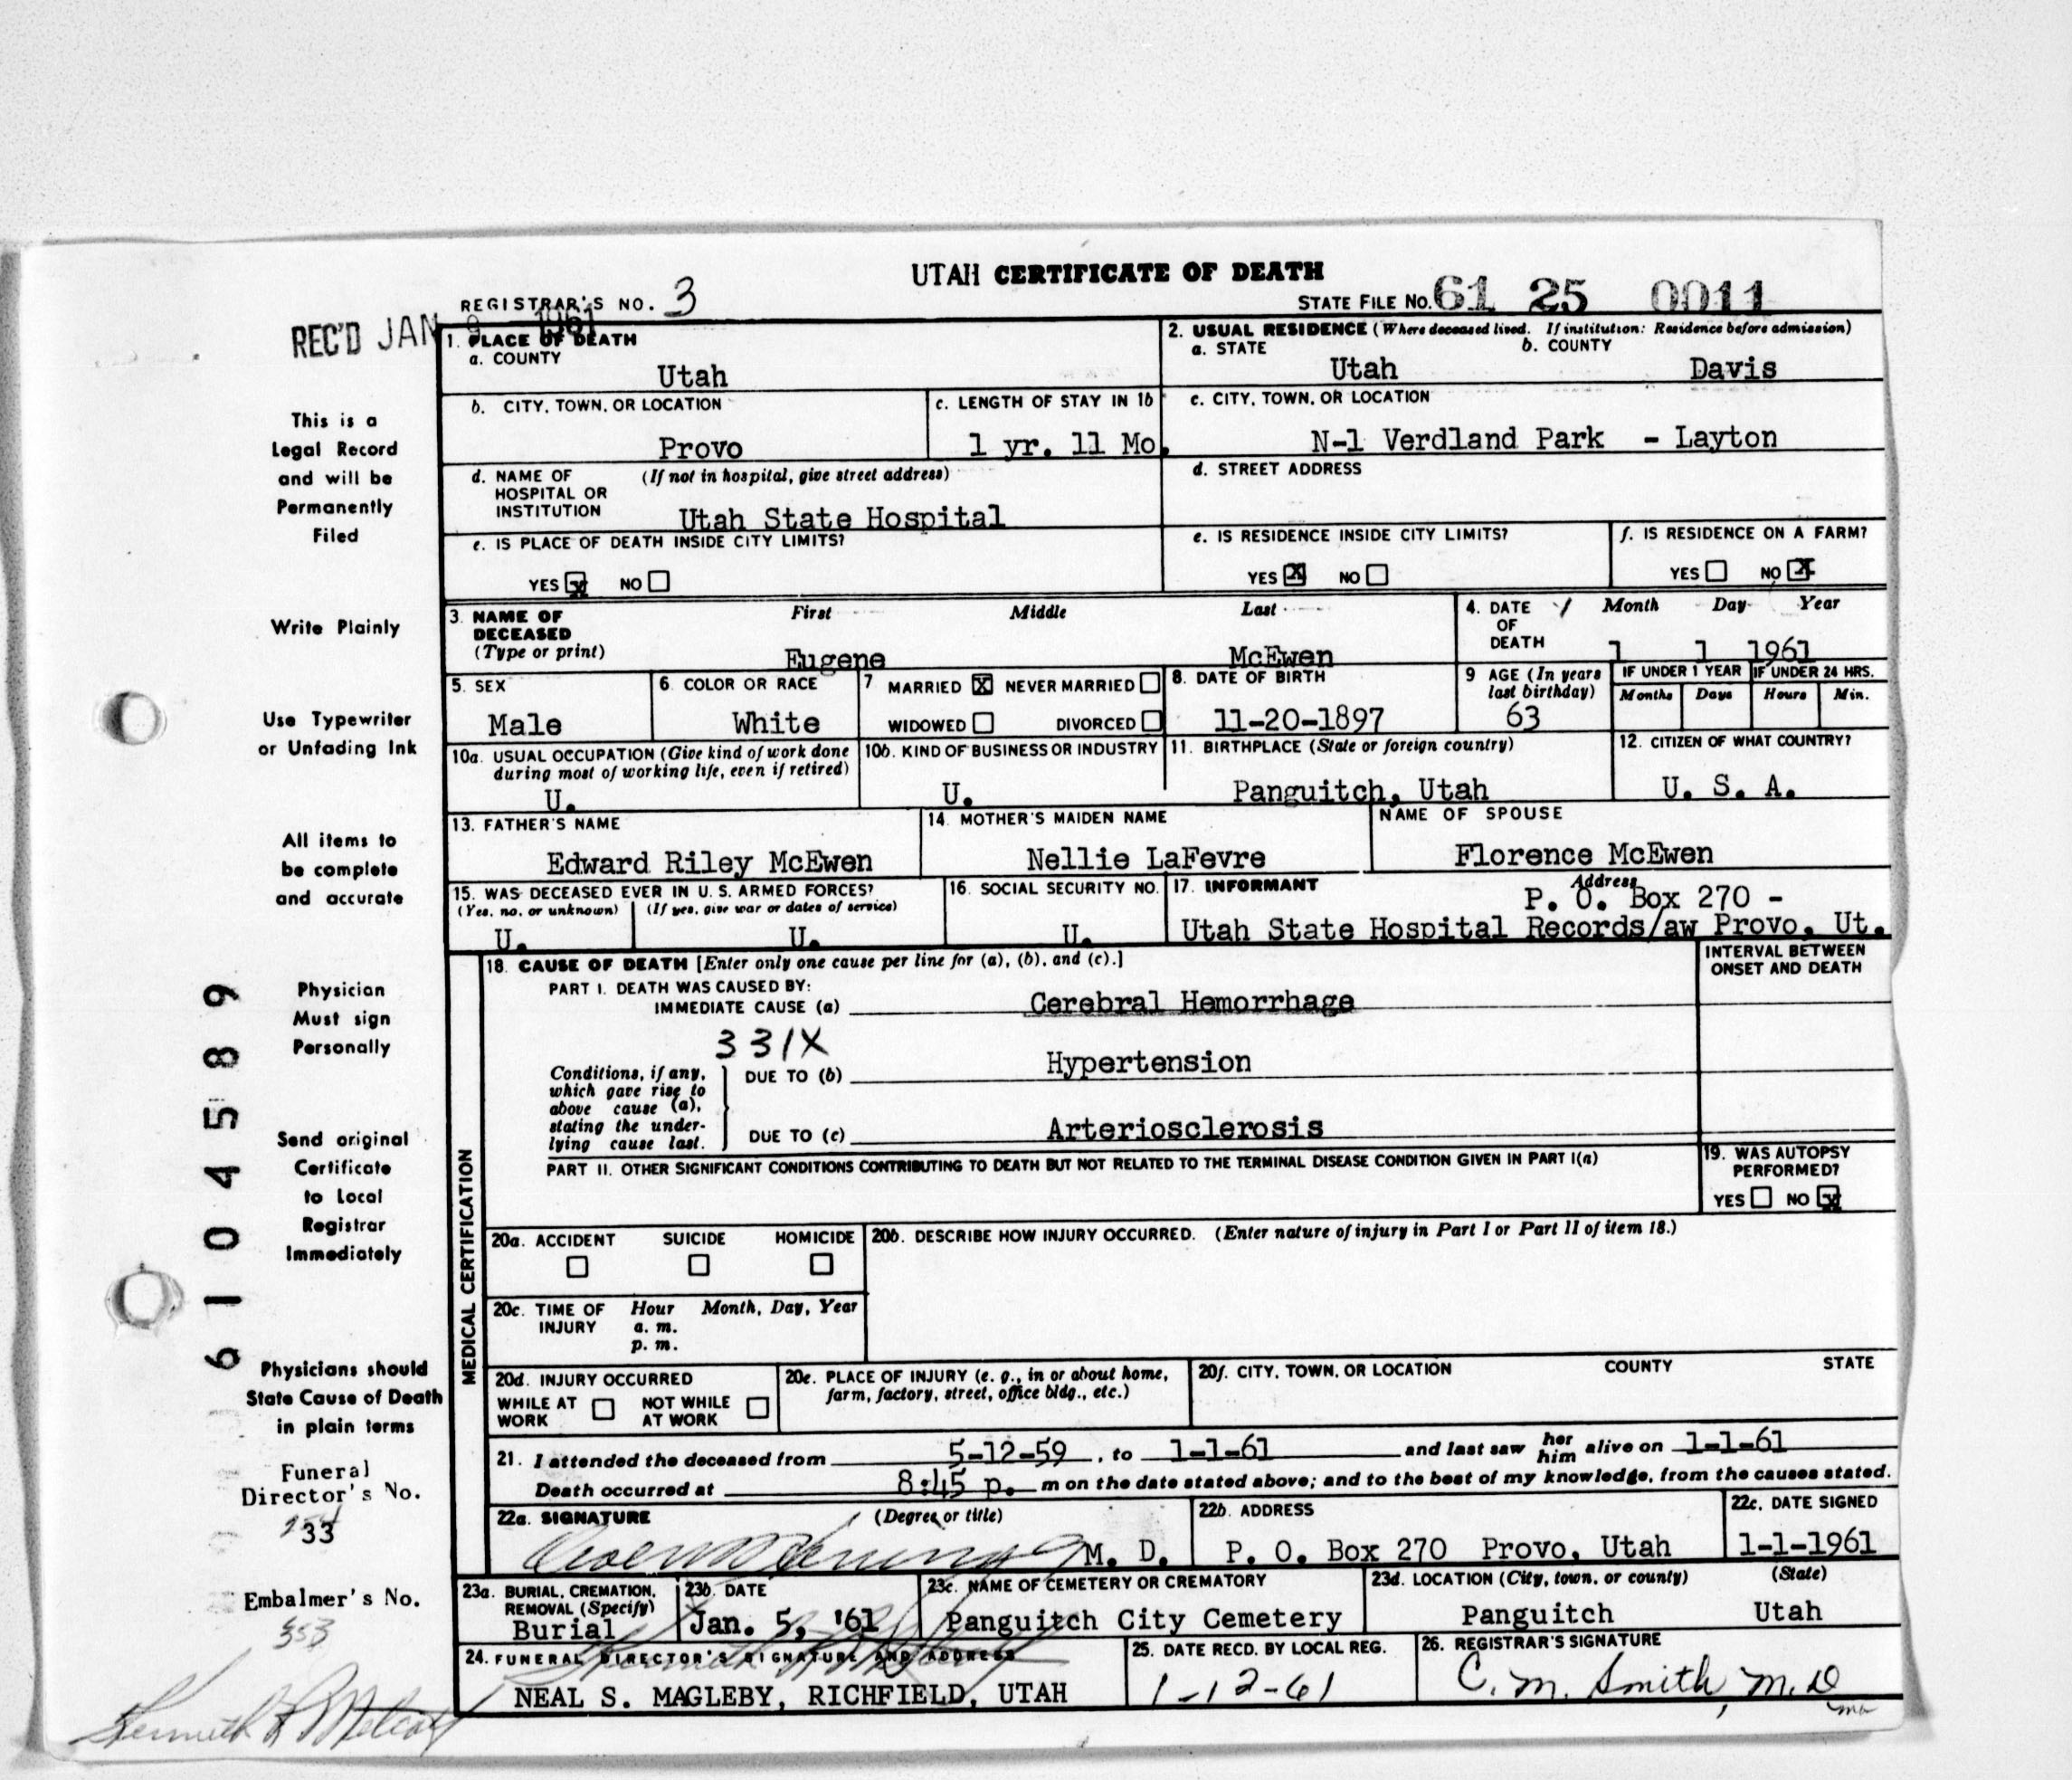 UTAH CERTIFICATE OF DEATH
REGISTRAR'S NO. 3
STATE FILE NO. 61 25 0011
REC'D JAN 9 1961
1. PLACE OF DEATH
a. COUNTY
Utah
2. USUAL RESIDENCE (Where deceased lived. If institution: Residence before admission)
a. STATE
b. COUNTY
Utah Davis
b. CITY, TOWN, OR LOCATION
Provo
c. LENGTH OF STAY IN 1b
1 yr. 11 Mo.
c. CITY, TOWN, OR LOCATION
N-1 Verdland Park - Layton
d. NAME OF HOSPITAL OR INSTITUTION
(If not in hospital, give street address)
Utah State Hospital
d. STREET ADDRESS
e. IS PLACE OF DEATH INSIDE CITY LIMITS?
YES x NO
e. IS RESIDENCE INSIDE CITY LIMITS?
YES X NO
f. IS RESIDENCE ON A FARM?
YES NO X
3. NAME OF DECEASED
(Type or print)
First Middle Last
Eugene McEwen
4. DATE OF DEATH
Month Day Year
1 1 1961
5. SEX
Male
6. COLOR OR RACE
White
7 MARRIED X NEVER MARRIED
WIDOWED DIVORCED
8. DATE OF BIRTH
11-20-1897
9 AGE (In years last birthday)
63
IF UNDER 1 YEAR
Months Days
IF UNDER 24 HRS.
Hours Min.
10a. USUAL OCCUPATION (Give kind of work done during most of working life, even if retired)
U.
10b. KIND OF BUSINESS OR INDUSTRY
U.
11. BIRTHPLACE (State or foreign country)
Panguitch, Utah
12. CITIZEN OF WHAT COUNTRY?
U. S. A.
13. FATHER'S NAME
Edward Riley McEwen
14. MOTHER'S MAIDEN NAME
Nellie LaFevre
NAME OF SPOUSE
Florence McEwen
15. WAS DECEASED EVER IN U. S. ARMED FORCES?
(Yes, no, or unknown) (If yes, give war or dates of service)
U. U.
16. SOCIAL SECURITY NO.
U.
17. INFORMANT
Address
P. O. Box 270 -
Utah State Hospital Records/aw Provo, Ut.
MEDICAL CERTIFICATION
18. CAUSE OF DEATH [Enter only one cause per line for (a), (b), and (c).]
INTERVAL BETWEEN ONSET AND DEATH
PART I. DEATH WAS CAUSED BY:
IMMEDIATE CAUSE (a) Cerebral Hemorrhage
331X
Conditions, if any, which gave rise to above cause (a), stating the underlying cause last.
DUE TO (b) Hypertension
DUE TO (c) Arteriosclerosis
PART II. OTHER SIGNIFICANT CONDITIONS CONTRIBUTING TO DEATH BUT NOT RELATED TO THE TERMINAL DISEASE CONDITION GIVEN IN PART I(a)
19. WAS AUTOPSY PERFORMED?
YES NO X
20a. ACCIDENT SUICIDE HOMICIDE
20b. DESCRIBE HOW INJURY OCCURRED. (Enter nature of injury in Part I or Part II of item 18.)
20c. TIME OF INJURY
Hour Month, Day, Year
a. m.
p. m.
20d. INJURY OCCURRED
WHILE AT WORK NOT WHILE AT WORK
20e. PLACE OF INJURY (e. g., in or about home, farm, factory, street, office bldg., etc.)
20f. CITY, TOWN, OR LOCATION COUNTY STATE
21. I attended the deceased from 5-12-59, to 1-1-61 and last saw her him alive on 1-1-61
Death occurred at 8:45 p. m on the date stated above; and to the best of my knowledge, from the causes stated.
22a. SIGNATURE (Degree or title)
M. D.
22b. ADDRESS
P. O. Box 270 Provo, Utah
22c. DATE SIGNED
1-1-1961
23a. BURIAL, CREMATION, REMOVAL (Specify)
Burial
23b. DATE
Jan. 5, '61
23c. NAME OF CEMETERY OR CREMATORY
Panguitch City Cemetery
23d. LOCATION (City, town, or county) (State)
Panguitch Utah
24. FUNERAL DIRECTOR'S SIGNATURE AND ADDRESS
NEAL S. MAGLEBY, RICHFIELD, UTAH
25. DATE RECD. BY LOCAL REG.
1-12-61
26. REGISTRAR'S SIGNATURE
C. M. Smith, M. D
This is a
Legal Record
and will be
Permanently
Filed
Write Plainly
Use Typewriter
or Unfading Ink
All items to
be complete
and accurate
Physician
Must sign
Personally
Send original
Certificate
to Local
Registrar
Immediately
Physicians should
State Cause of Death
in plain terms
Funeral
Director's No.
33
Embalmer's No.
353
6104589